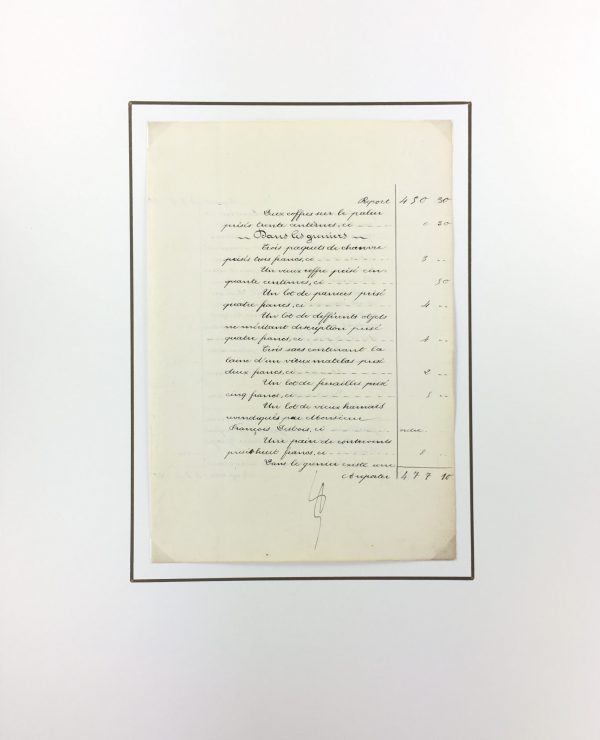 Report 450 30
Deux coffres sur le palier
prisés trente centimes, ci 0 30
Dans les greniers
Trois paquets de chanvre
prisés trois francs, ci 3
Un vieux coffre prisé cin
quante centimes, ci 50
Un lot de paniers prisé
quatre francs, ci 4
Un lot de différents objets
ne méritant description prisé
quatre francs, ci 4
Trois sacs contenant la
laine d'un vieux matelas prisé
deux francs, ci 2
Un lot de ferrailles prisé
cinq francs, ci 5
Un lot de vieux harnais
revendiqués par Monsieur
François, ci
Une paire de contrevents
prisés huit francs, ci 8
Dans le grenier existe une
A reporter 477 10